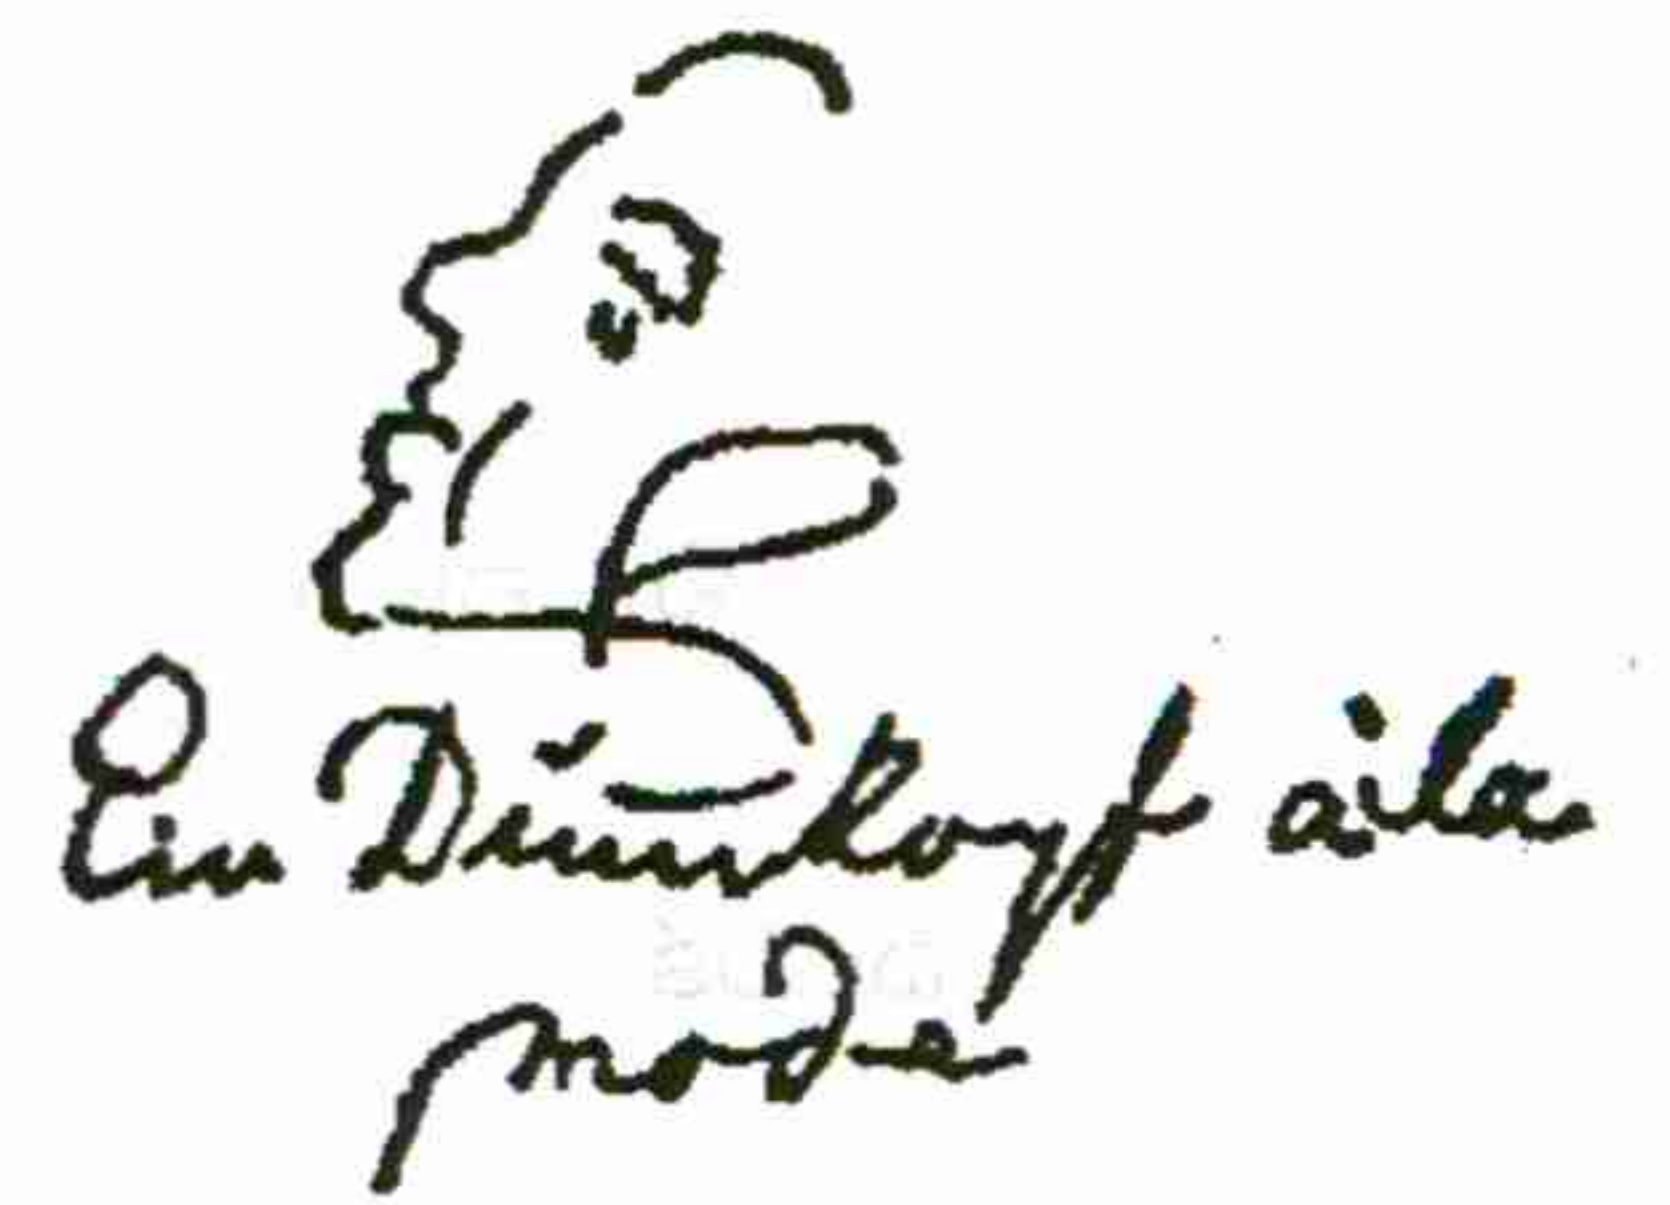 Ein Dumkopf à la
mode